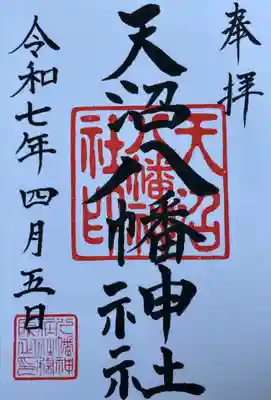 奉拝
天沼八幡神社
天沼八幡神社印
令和七年四月五日